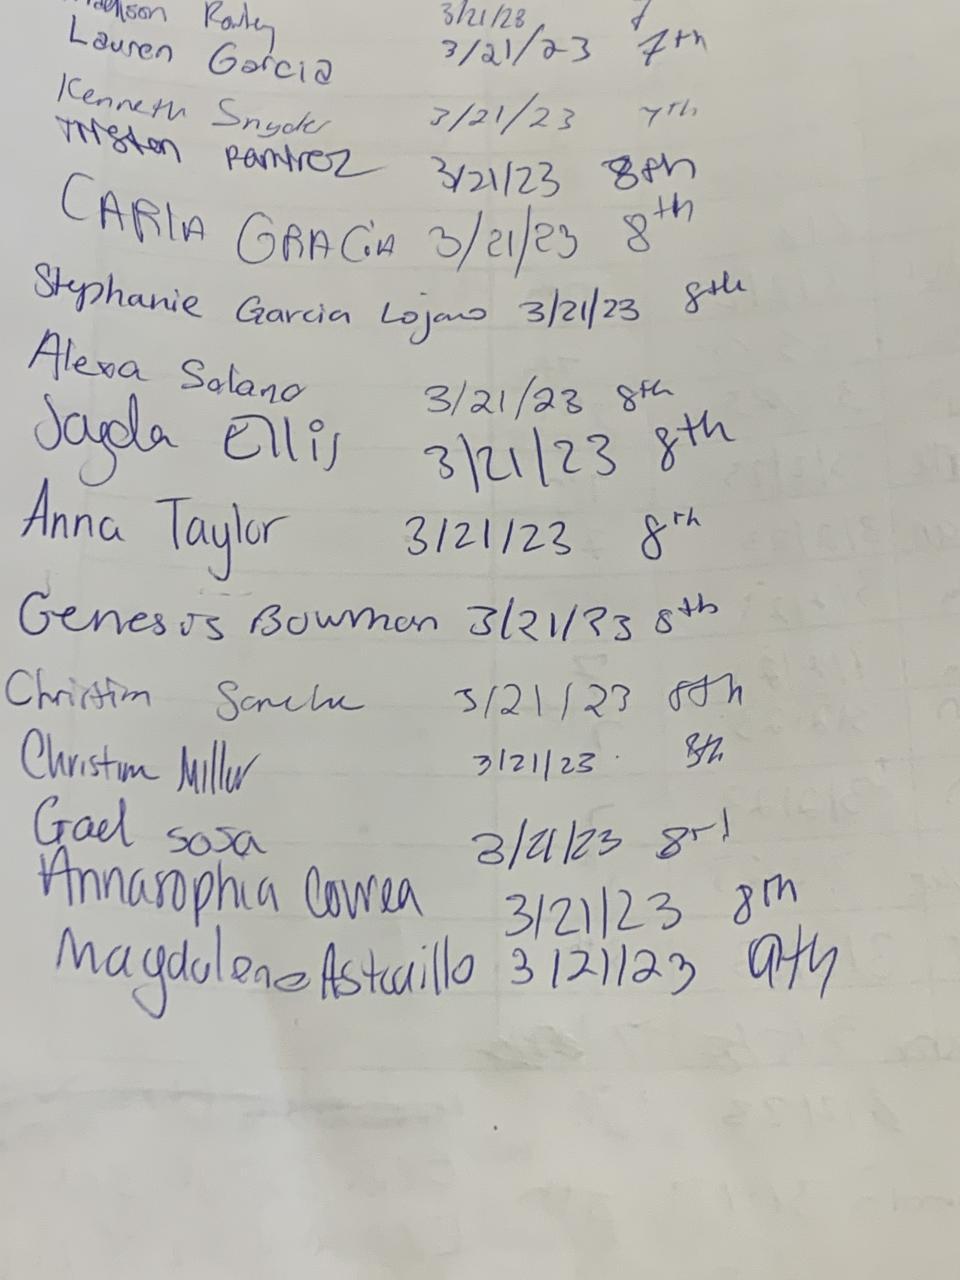 3/21/23 7
Lauren Garcia 3/21/23 7th
Kenneth Snyder 3/21/23 7th
Tristen Ramirez 3/21/23 8th
CARLA GRACiA 3/21/23 8th
Stephanie Garcia Lojano 3/21/23 8th
Alexa Solano 3/21/23 8th
Jayda Ellis 3/21/23 8th
Anna Taylor 3/21/23 8th
Genesus Bowman 3/21/23 8th
3/21/23 8th
Miller 3/21/23 8th
Gael sosa 3/21/23 8rd
Annasophia Correa 3/21/23 8th
3/21/23 9th